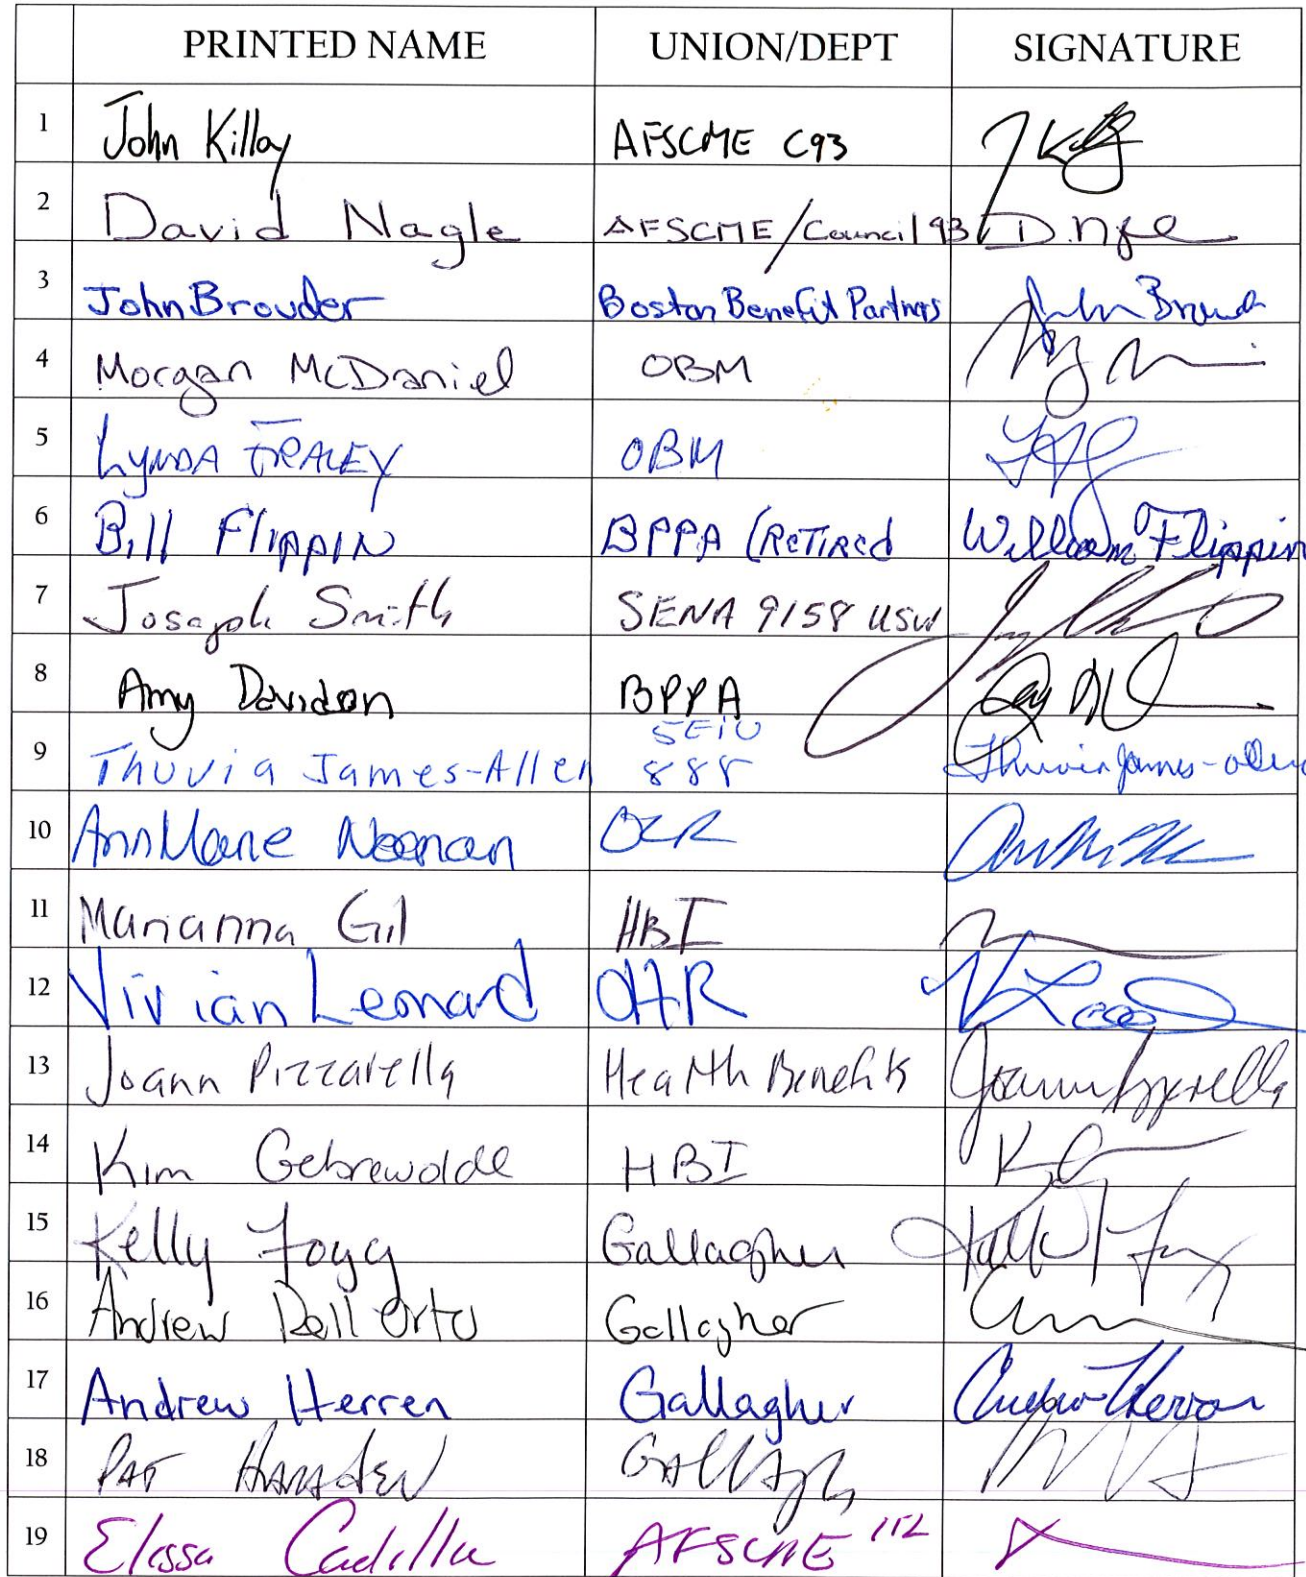 PRINTED NAME UNION/DEPT SIGNATURE
1 John Killoy AFSCME C93 J Killoy
2 David Nagle AFSCME/Council 93 D. Ngle
3 John Browder Boston Benefit Partners John Browder
4 Morgan McDaniel OBM
5 Lynda FRALEY OBM
6 Bill Flippin BPPA (RETIRED William Flippin
7 Joseph Smith SENA 9158 USW
8 Amy Davidson BPPA
9 Thuvia James-Allen SEIU 888 Thuvia James-Allen
10 AnnMarie Noonan OLR
11 Marianna Gil HBI
12 Vivian Leonard OHR
13 Joann Pizzarella Health Benefits Joann Pizzarella
14 Kim Gebrewolde HBI
15 Kelly Fogg Gallagher
16 Andrew Dell'Orto Gallagher
17 Andrew Herren Gallagher Andrew Herren
18 PAT Gallagher
19 Elissa Cadillic AFSCME